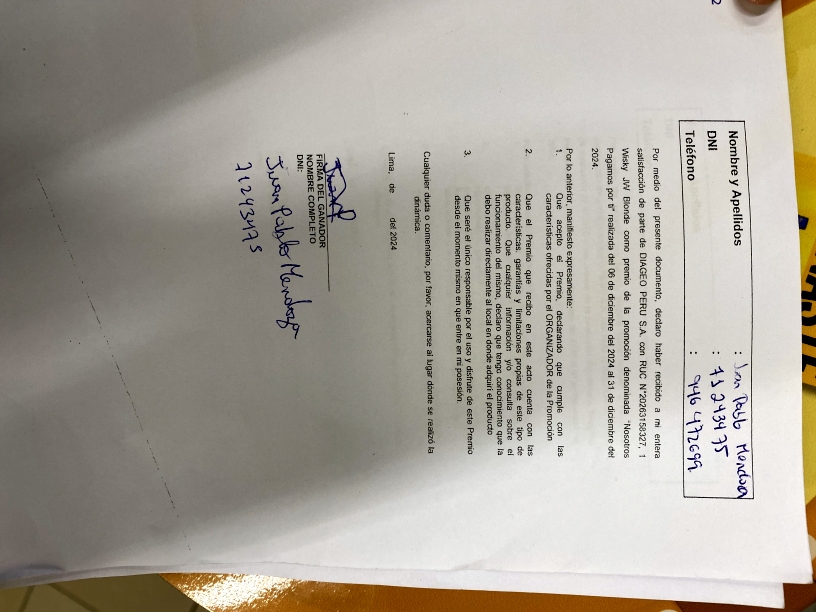 Nombre y Apellidos : Juan Pablo Mendoza
DNI : 71243475
Teléfono : 946472699
Por medio del presente documento, declaro haber recibido a mi entera
satisfacción de parte de DIAGEO PERU S.A. con RUC N°20263158327, 1
Wisky JW Blonde como premio de la promoción denominada "Nosotros
Pagamos por ti" realizada del 06 de diciembre del 2024 al 31 de diciembre del
2024.
Por lo anterior, manifiesto expresamente:
1. Que acepto el Premio, declarando que cumple con las
características ofrecidas por el ORGANIZADOR de la Promoción
2. Que el Premio que recibo en este acto cuenta con las
características, garantías y limitaciones propias de este tipo de
producto. Que cualquier información y/o consulta sobre el
funcionamiento del mismo, declaro que tengo conocimiento que la
debo realizar directamente al local en donde adquirí el producto
3. Que seré el único responsable por el uso y disfrute de este Premio
desde el momento mismo en que entre en mi posesión.
Cualquier duda o comentario, por favor, acercarse al lugar dónde se realizó la
dinámica.
Lima, de del 2024
FIRMA DEL GANADOR
NOMBRE COMPLETO
DNI:
Juan Pablo Mendoza
71243475